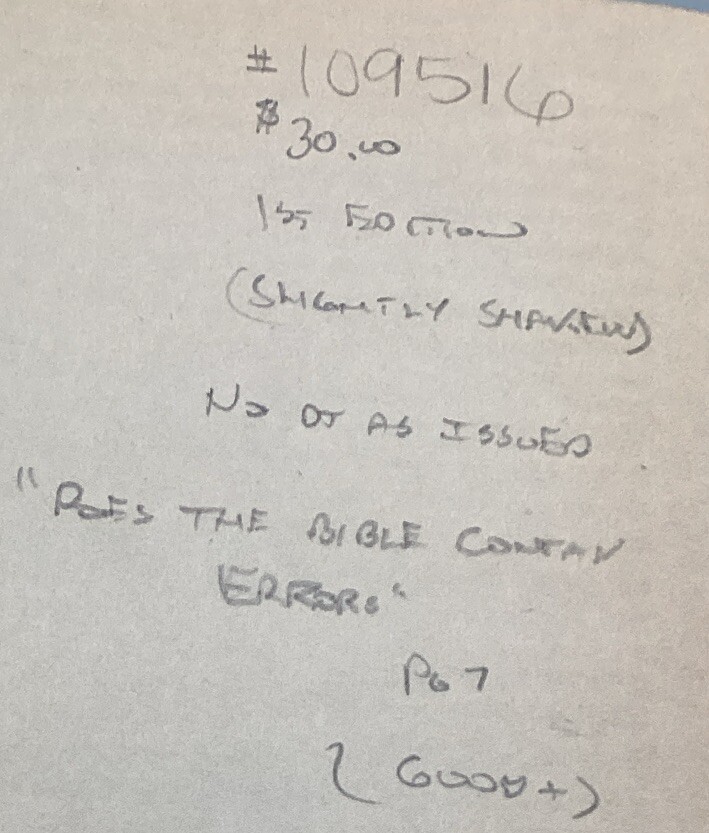 #109516
$30.00
1ST EDITION
(SLIGHTLY SHAKEN)
NO DJ AS ISSUED
"DOES THE BIBLE CONTAIN
ERRORS"
PG 7
(GOOD+)